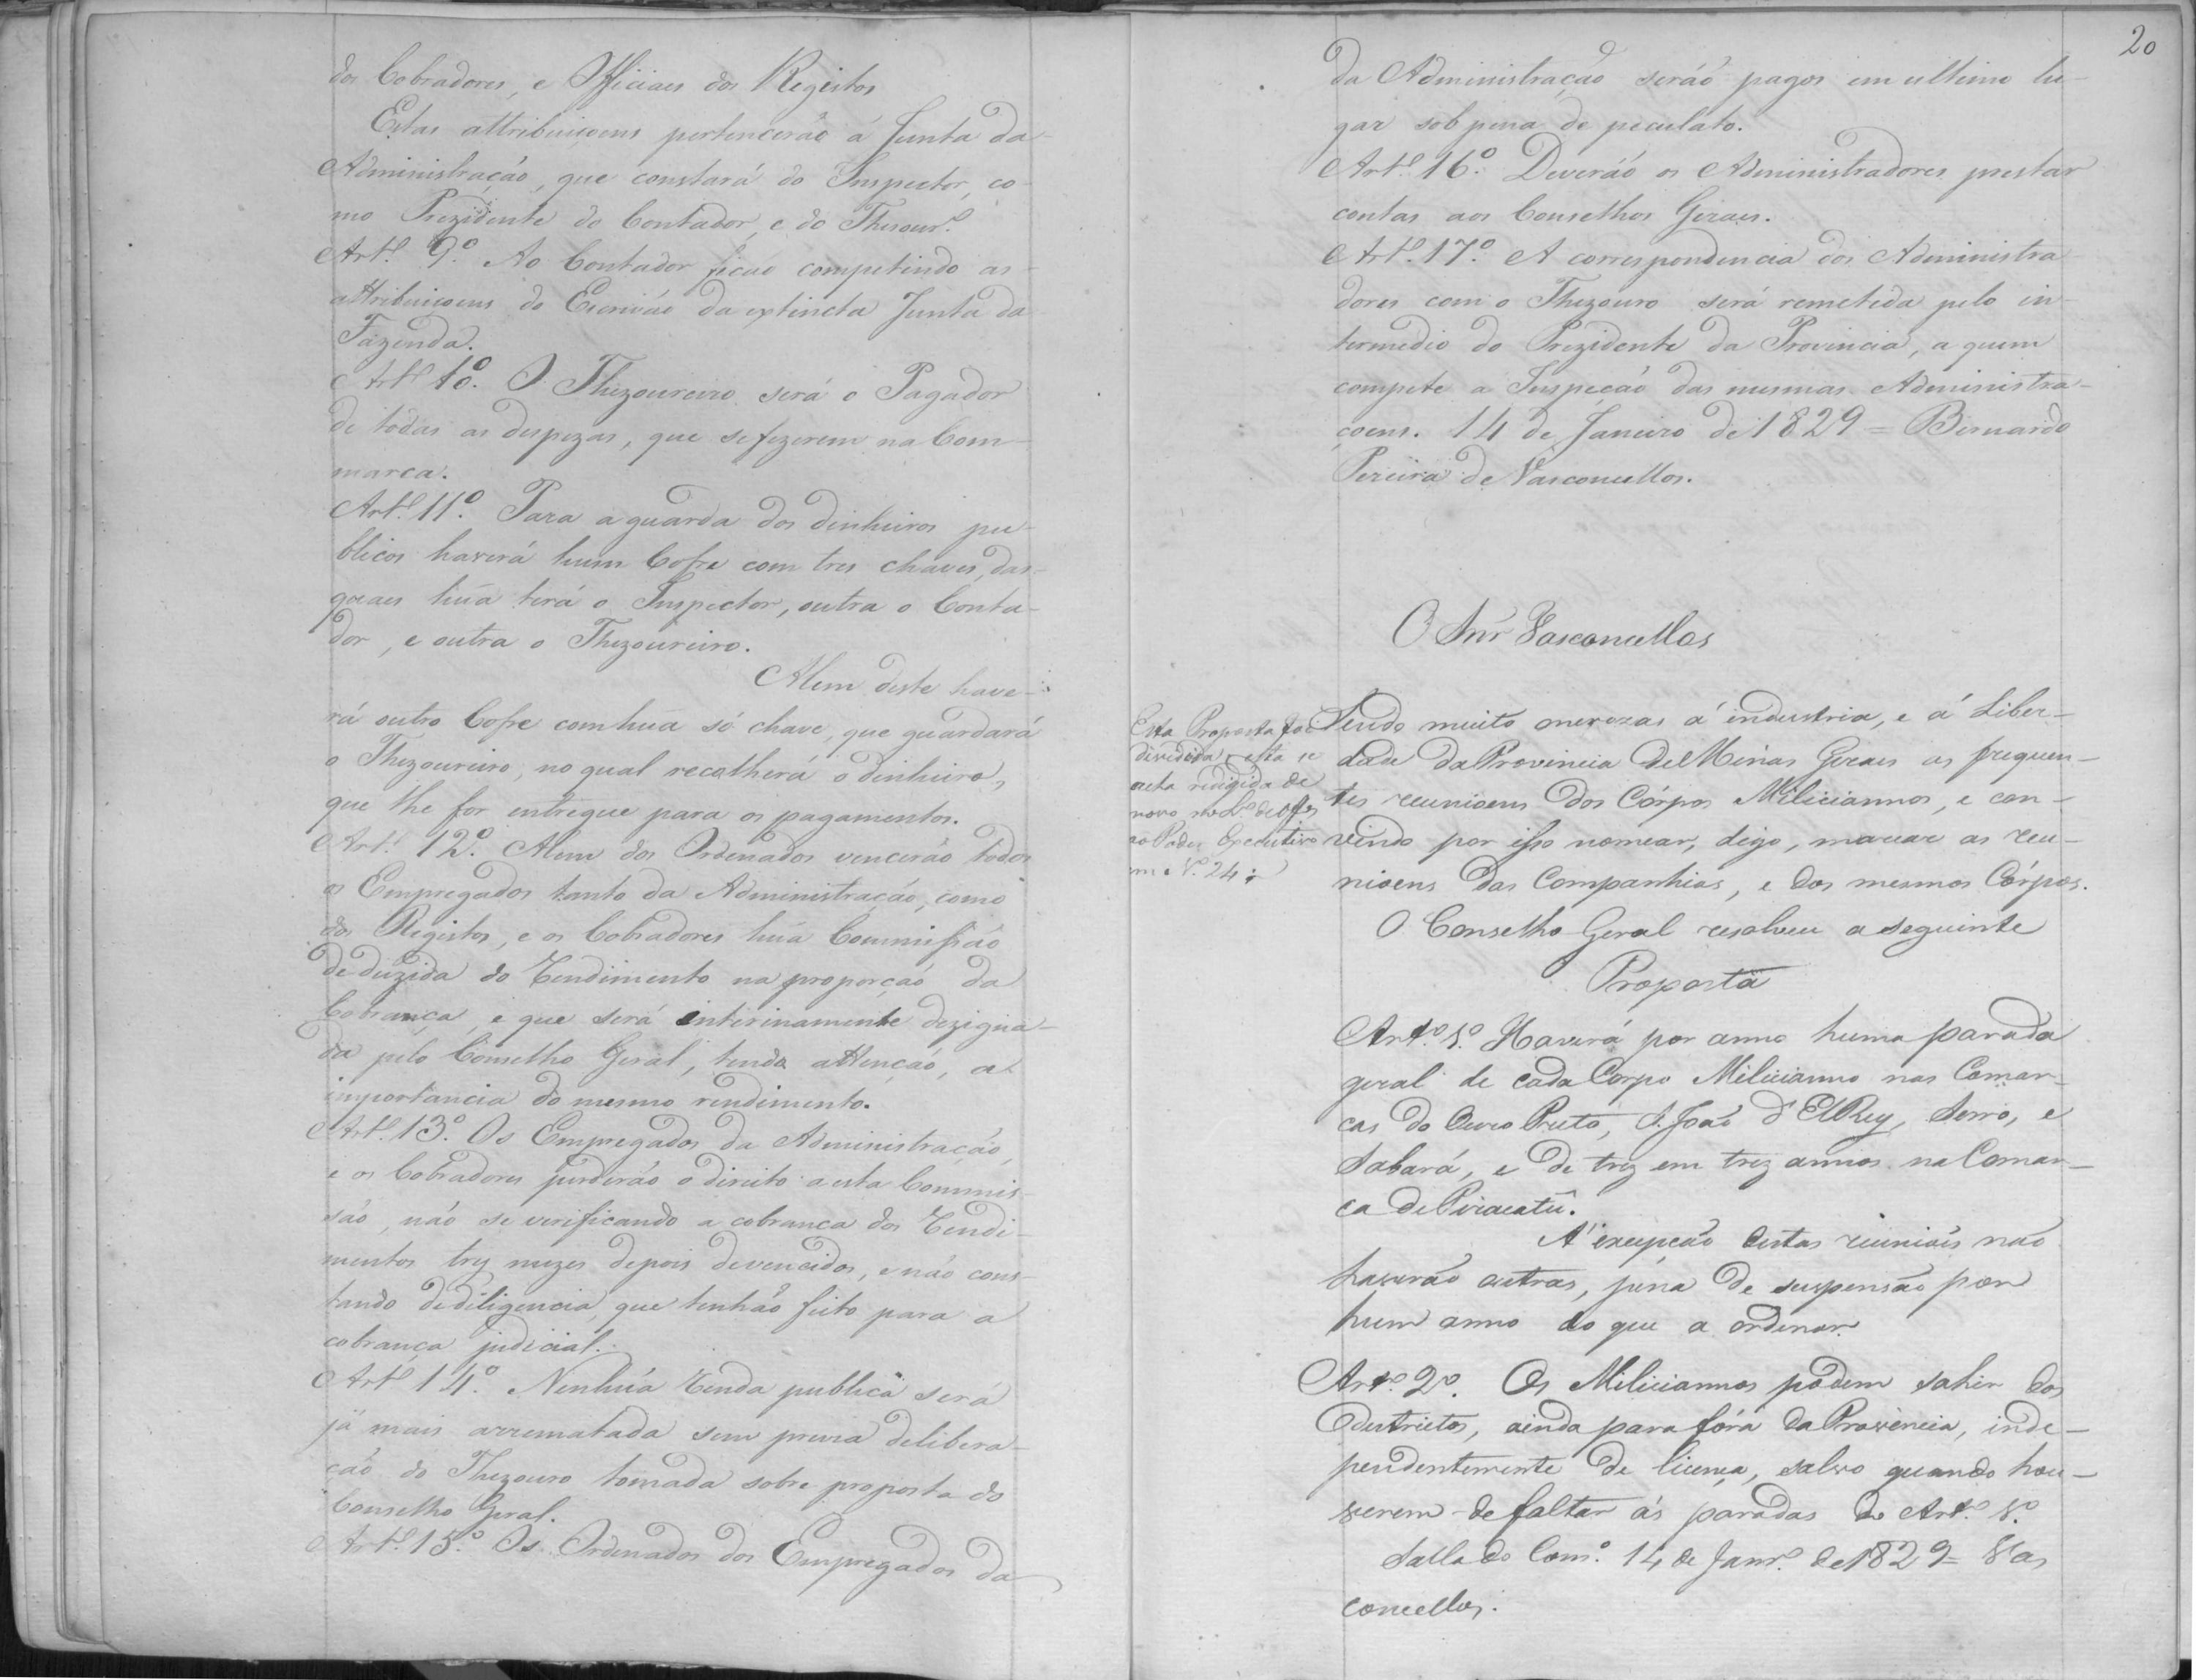 dos Cobradores, e Officiaes dos Registos
Estas attribuiçoens pertencerão á Junta da
Administração, que constará do Inspector, co-
mo Prezidente do Contador, e do Thesour.º
Art.º 9.º Ao Contador ficão competindo as
attribuiçoens do Escrivão da extincta Junta da
Fazenda.
Art.º 10.º O Thezoureiro será o Pagador
de todas as despezas, que se fizerem na Com-
marca.
Art.º 11.º Para a guarda dos dinheiros pu-
blicos haverá hum Cofre com tres chaves, das
quaes hũa terá o Inspector, outra o Conta-
dor, e outra o Thezoureiro.
Alem deste have-
rá outro Cofre com hũa só chave, que guardará
o Thezoureiro, no qual recolherá o dinheiro,
que lhe for entregue para os pagamentos.
Art.º 12.º Alem dos Ordenados vencerão todos
os Empregados tanto da Administração, como
dos Registos, e os Cobradores hũa Commissão
deduzida do Rendimento na proporção da
Cobrança, e que será interinamente dezigna-
da pelo Conselho Geral, tendo attenção, a
importancia do mesmo rendimento.
Art.º 13.º Os Empregados da Administração,
e os Cobradores perderáõ o direito a esta Commis-
são, não se verificando a cobrança dos Rendi-
mentos trez mezes depois de vencidos, e não cons-
tando de diligencia, que tenhão feito para a
cobrança judicial.
Art.º 14.º Nenhũa Renda publica será
já mais arrematada sem previa delibera-
ção do Thezouro tomada sobre proposta do
Conselho Geral.
Art.º 15.º Os Ordenados dos Empregados da
20
da Administração seráõ pagos em ultimo lu-
gar sob pena de peculato.
Art.º 16.º Deveráõ os Administradores prestar
contas aos Conselhos Geraes.
Art.º 17.º A correspondencia dos Administra
dores com o Thezouro será remetida pelo in-
termedio do Prezidente da Provincia, a quem
compete a Inspeção das mesmas Administra-
çoens. 14 de Janeiro de 1829 = Bernardo
Pereira de Vasconcellos.
O Snr Vasconcellos
Esta Proposta foi
dividida, e esta se
acha redigida de
novo no L.º de Off.es
ao Poder Executivo
em o N.º 24
Sendo muito onerozas á industria, e á Liber-
dade da Provincia de Minas Geraes as frequen-
tes reunioens dos Córpos Miliciannos, e con-
vindo por isso nomear, digo, marcar as reu-
nioens das Companhias, e dos mesmos Córpos.
O Conselho Geral resolveu a seguinte
Proposta
Art.º 1.º Haverá por anno huma parada
geral de cada Corpo Milicianno nas Comar-
cas do Ouro Preto, S. João d'ElRey, Serro, e
Sabará, e de trez em trez annos na Comar-
ca de Piracatú.
A' excepção destas reuniões não
haverão outras, pena de suspensão por
hum anno do que a ordenar.
Art.º 2.º Os Miliciannos podem sahir dos
Destrictos, ainda para fóra da Provincia, inde-
pendentemente de licença, salvo quando hou-
verem de faltar ás paradas do Art.º 1.º
Salla do Com.º 14 de Janr.º de 1829 = Vas
concellos.